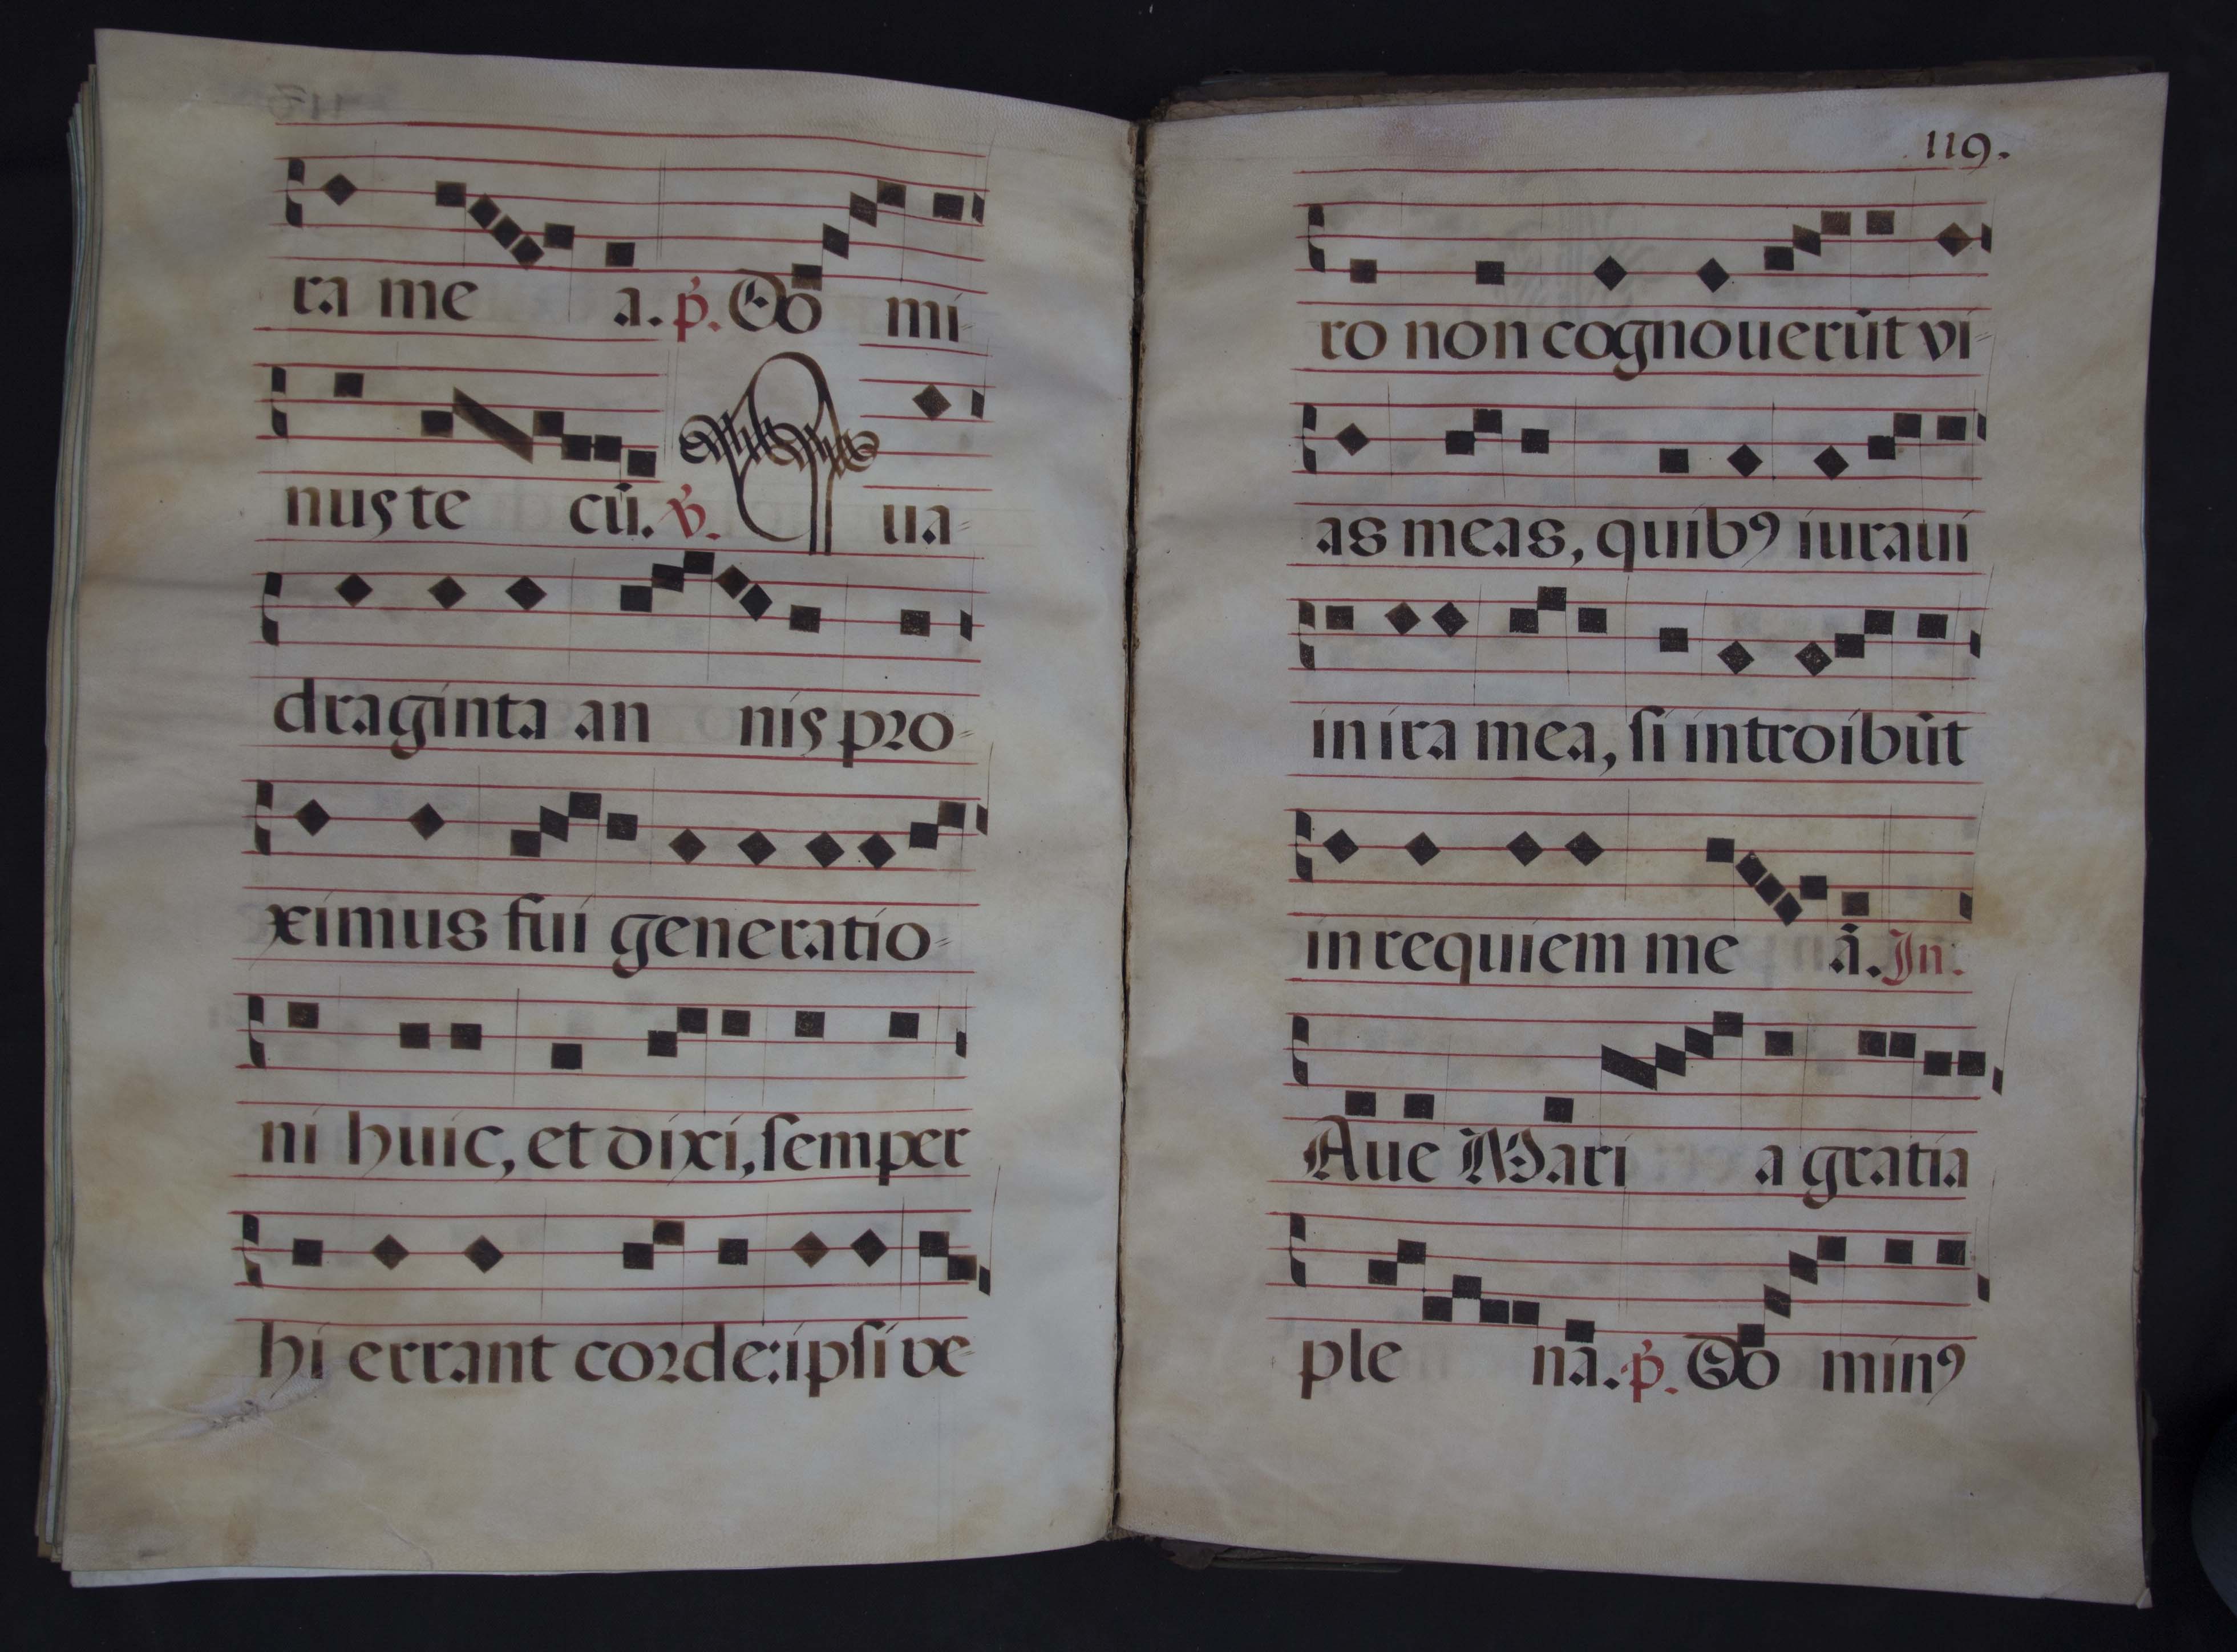 ra me a. p̃. Do mi-
nus te cũ. ṽ. Qua-
draginta an nis pro-
ximus fui generatio-
ni huic, et dixi, semper
hi errant corde: ipsi ve-
119.
ro non cognouerũt vi-
as meas, quibꝯ iuraui
in ira mea, si introibũt
in requiem me ã. In.
Aue Mari a gratia
ple na. p̃. Do minꝯ